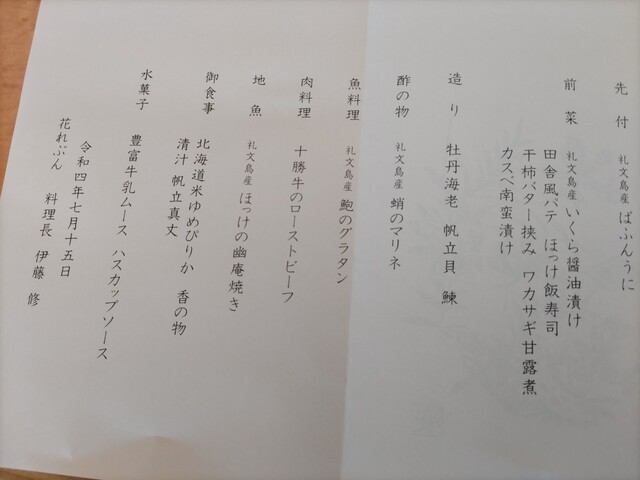 先付 礼文島産 ばふんうに
前菜 礼文島産 いくら醤油漬け
田舎風パテ ほっけ飯寿司
干柿バター挟み ワカサギ甘露煮
カスベ南蛮漬け
造り 牡丹海老 帆立貝 鰊
酢の物 礼文島産 蛸のマリネ
魚料理 礼文島産 鮑のグラタン
肉料理 十勝牛のローストビーフ
地魚 礼文島産 ほっけの幽庵焼き
御食事 北海道米ゆめぴりか 香の物
清汁 帆立真丈
水菓子 豊富牛乳ムース ハスカップソース
令和四年七月十五日
花れぶん 料理長 伊藤 修